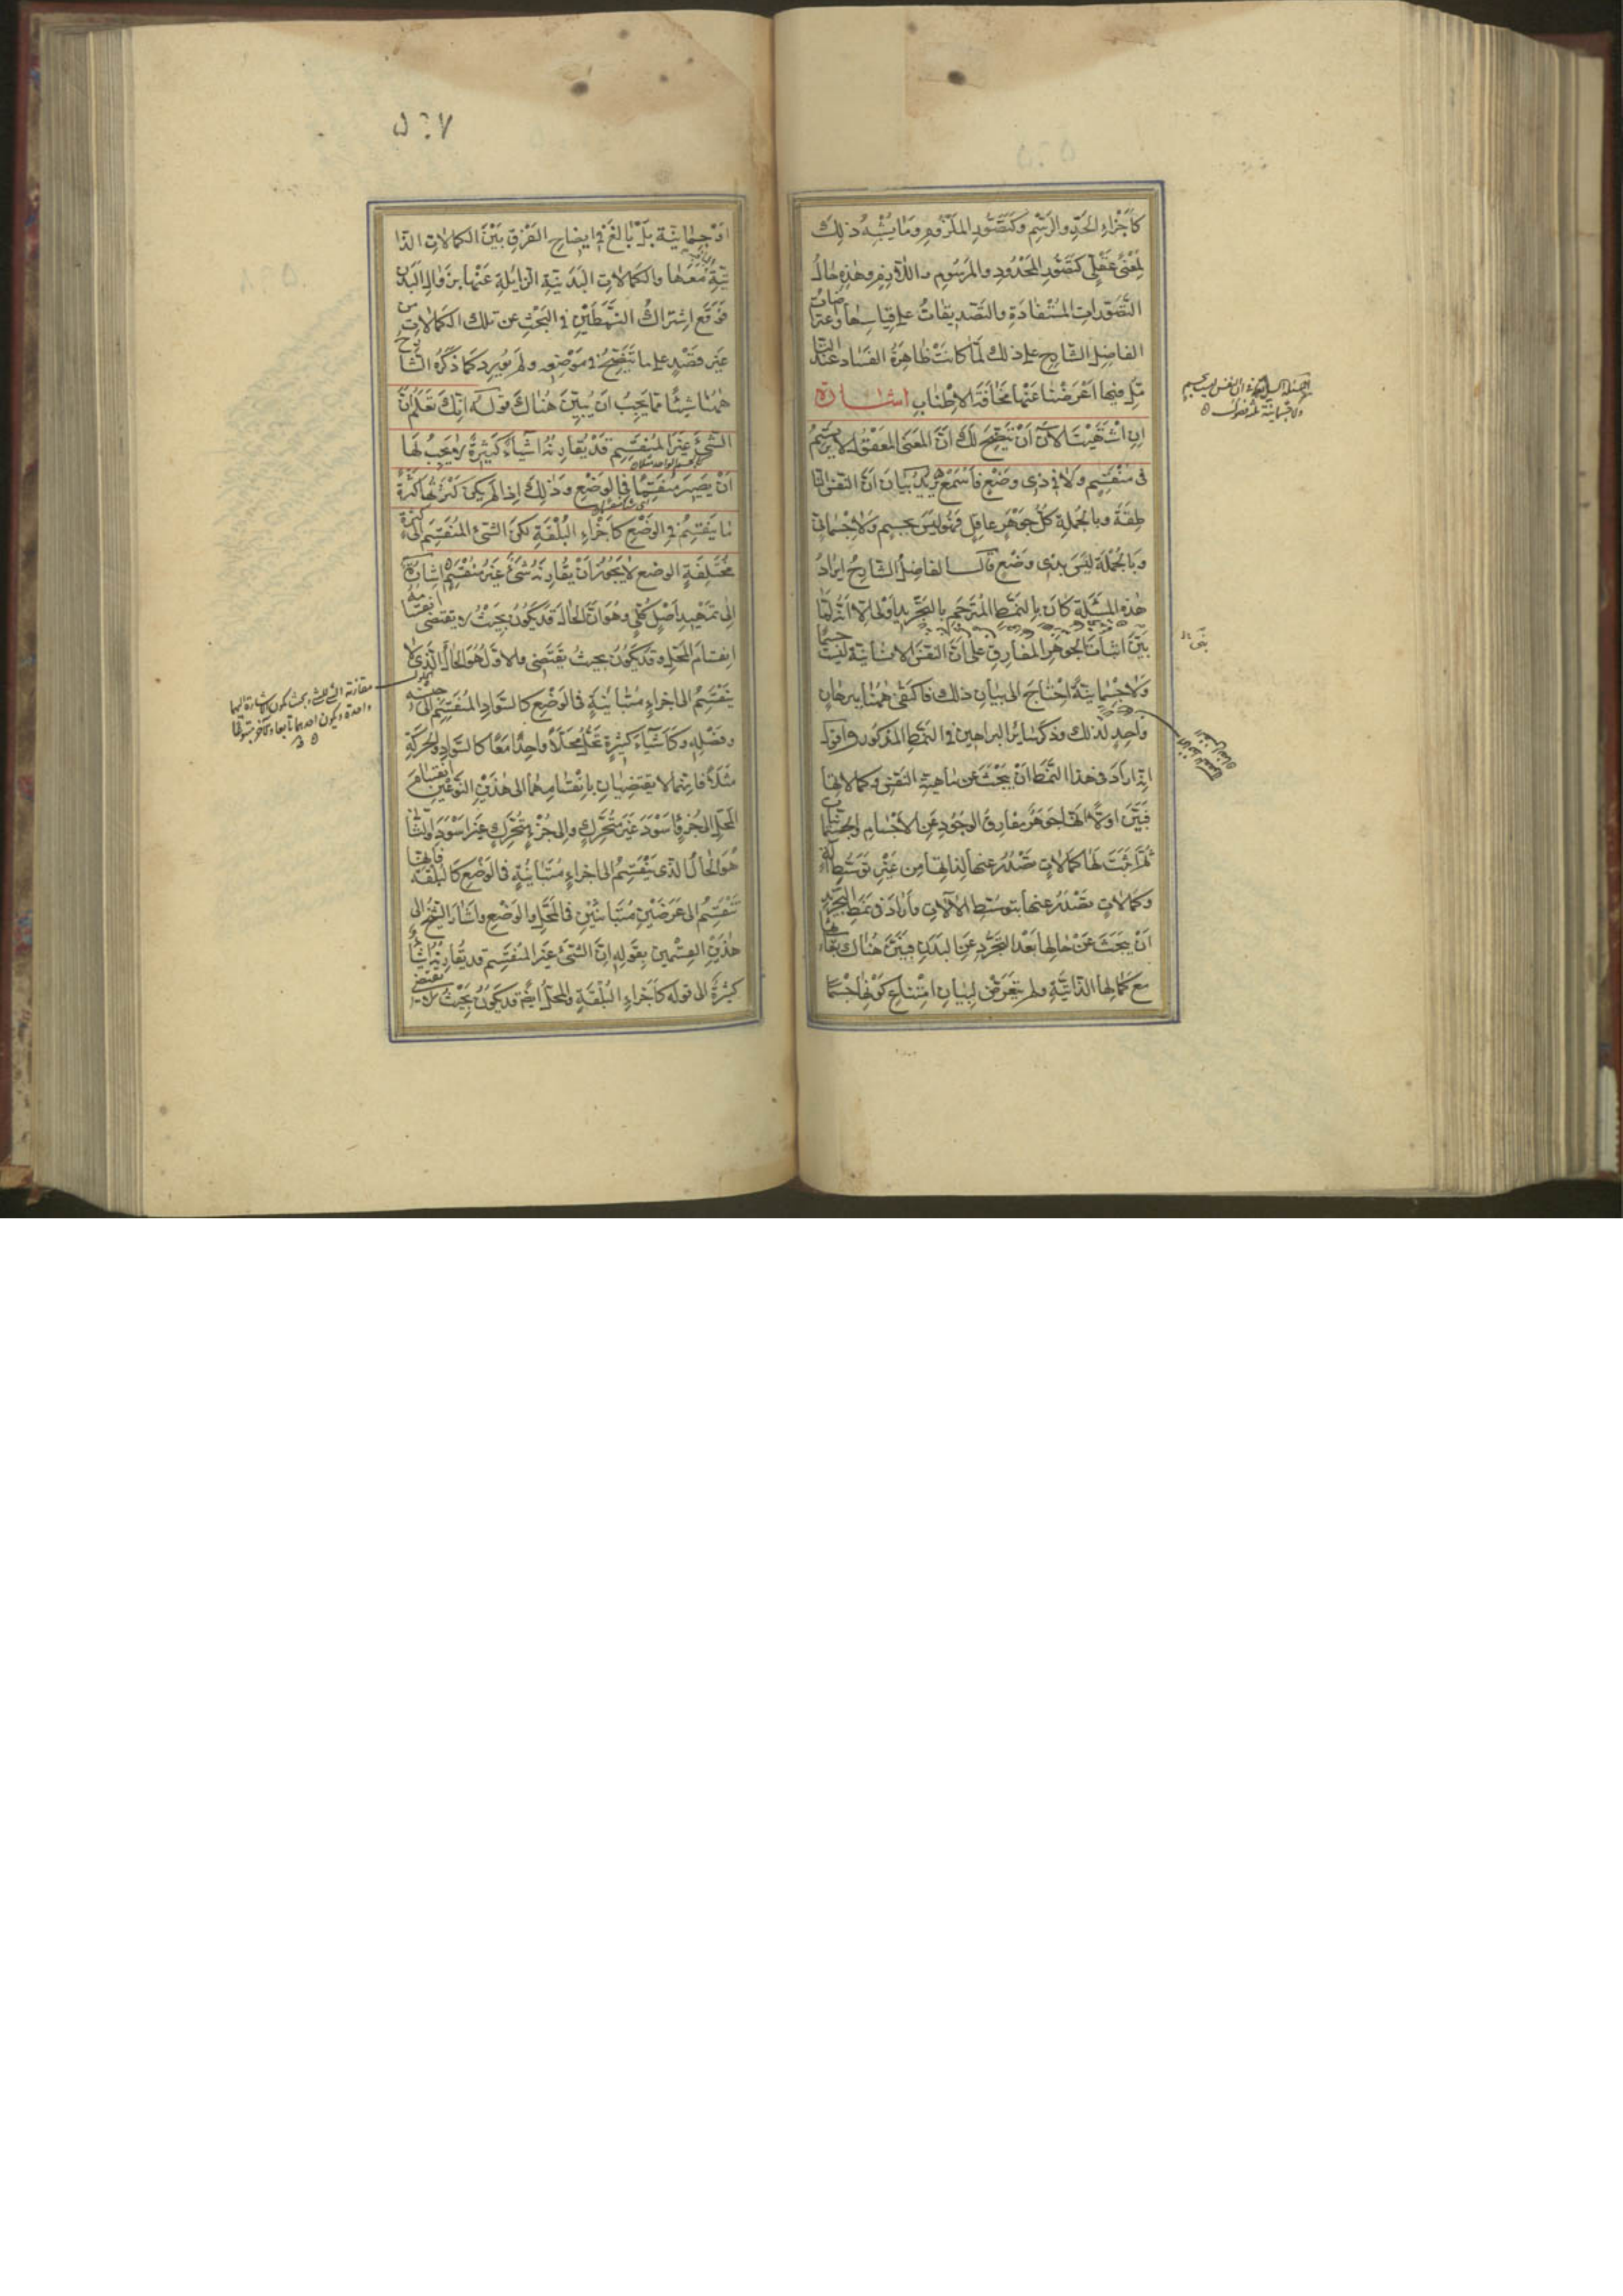 كأجزاء الحد والرسم وكتصور الملزوم وما يشبه ذلك
لمعنى عقلي كتصور المحدود والمرسوم واللازم وهذه حال
التصورات المستفادة والتصديقات على قياسها واعتراضات
الفاضل الشارح على ذلك لما كانت ظاهرة الفساد عند التا
مل فيها اعرضنا عنها مخافة الاطناب اشارة
ان اشتهيت الآن ان يتضح لك ان المعنى المعقول لا يرتسم
في منقسم ولا في ذي وضع فاسمع يريد بيان ان النفس النا
طقة وبالجملة كل جوهر عاقل فهو ليس بجسم ولا جسماني
وبالجملة ليس بذي وضع قال الفاضل الشارح ايراد
هذه المسئلة كان بالنمط المترجم بالتجريد اولى الا انه لما
بين اثبات الجوهر المفارق على ان النفس الانسانية ليست جسما
ولا جسمانية احتاج الى بيان ذلك فاكتفى ههنا ببرهان
واحد لذلك وذكر سائر البراهين في النمط المذكور واقول
انه اراد في هذا النمط ان يبحث عن ماهية النفس وكمالاتها
فبين اولا انها جوهر مفارق الوجود عن الاجسام والجسمانيات
ثم اثبت لها كمالات تصدر عنها لذاتها من غير توسط آلة
وكمالات تصدر عنها بتوسط الآلات واراد في نمط التجريد
ان يبحث عن حالها بعد التجرد عن البدن فبين هناك بقاءها
مع كمالاتها الذاتية ولم يتعرض لبيان امتناع كونها جسما
۵۰۷
او جسمانية بل بالغ في ايضاح الفرق بين الكمالات الذا
تية معها والكمالات البدنية الزايلة عنها بزوال البدن
فوقع اشتراك النمطين في البحث عن تلك الكمالات من
غير قصد على ما يتضح في موضعه ولم يورد كما ذكره الشارح
ههنا شيئا مما يجب ان يبين هناك قوله انك تعلم ان
الشيء غير المنقسم قد يقارنه اشياء كثيرة لا يجب لها
ان يصير منقسما في الوضع وذلك اذا لم يكن كثرتها كثرة
ما ينقسم في الوضع كأجزاء البلقة لكن الشيء المنقسم الى كثرة
مختلفة الوضع لا يجوز ان يقارنه شيء غير منقسم اشارة
الى تمهيد اصل كلي وهو ان الحال قد يكون بحيث لا يقتضي انقسامه
انقسام المحل وقد يكون بحيث يقتضي والاول هو الحال الذي لا
ينقسم الى اجزاء متباينة في الوضع كالسواد المنقسم الى جنسه
وفصله وكأشياء كثيرة تحل محلا واحدا معا كالسواد والحركة
مثلا فانهما لا يقتضيان بانقسامهما الى هذين النوعين انقسام
المحل الى جزء اسود غير متحرك والى جزء متحرك غير اسود والثاني
هو الحال الذي ينقسم الى اجزاء متباينة في الوضع كالبلقة فانها
تنقسم الى عرضين متباينين في المحل والوضع واشار الشيخ الى
هذين القسمين بقوله ان الشيء غير المنقسم قد يقارنه اشياء
كثيرة الى قوله كأجزاء البلقة والمحل ايضا قد يكون بحيث لا يقتضي